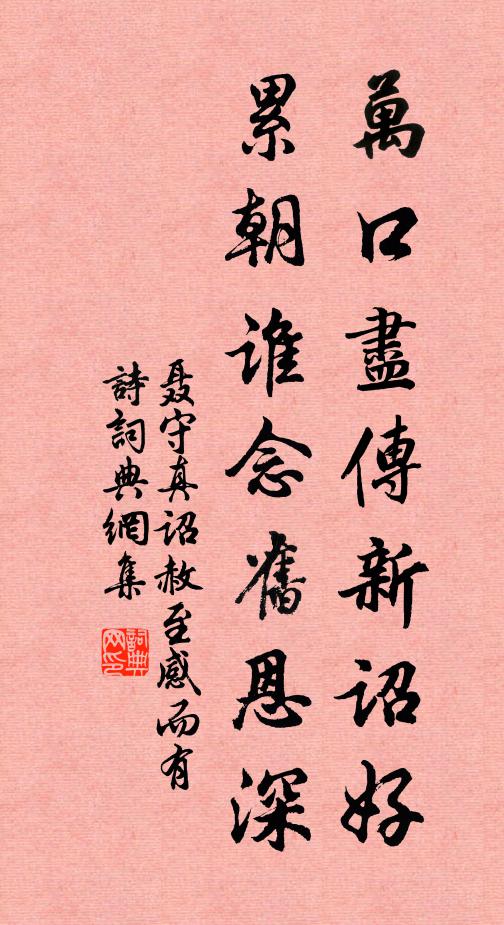 萬口盡傳新詔好
累朝誰念舊恩深
聂守真詔赦至感而有
詩詞典網集
詞典网印